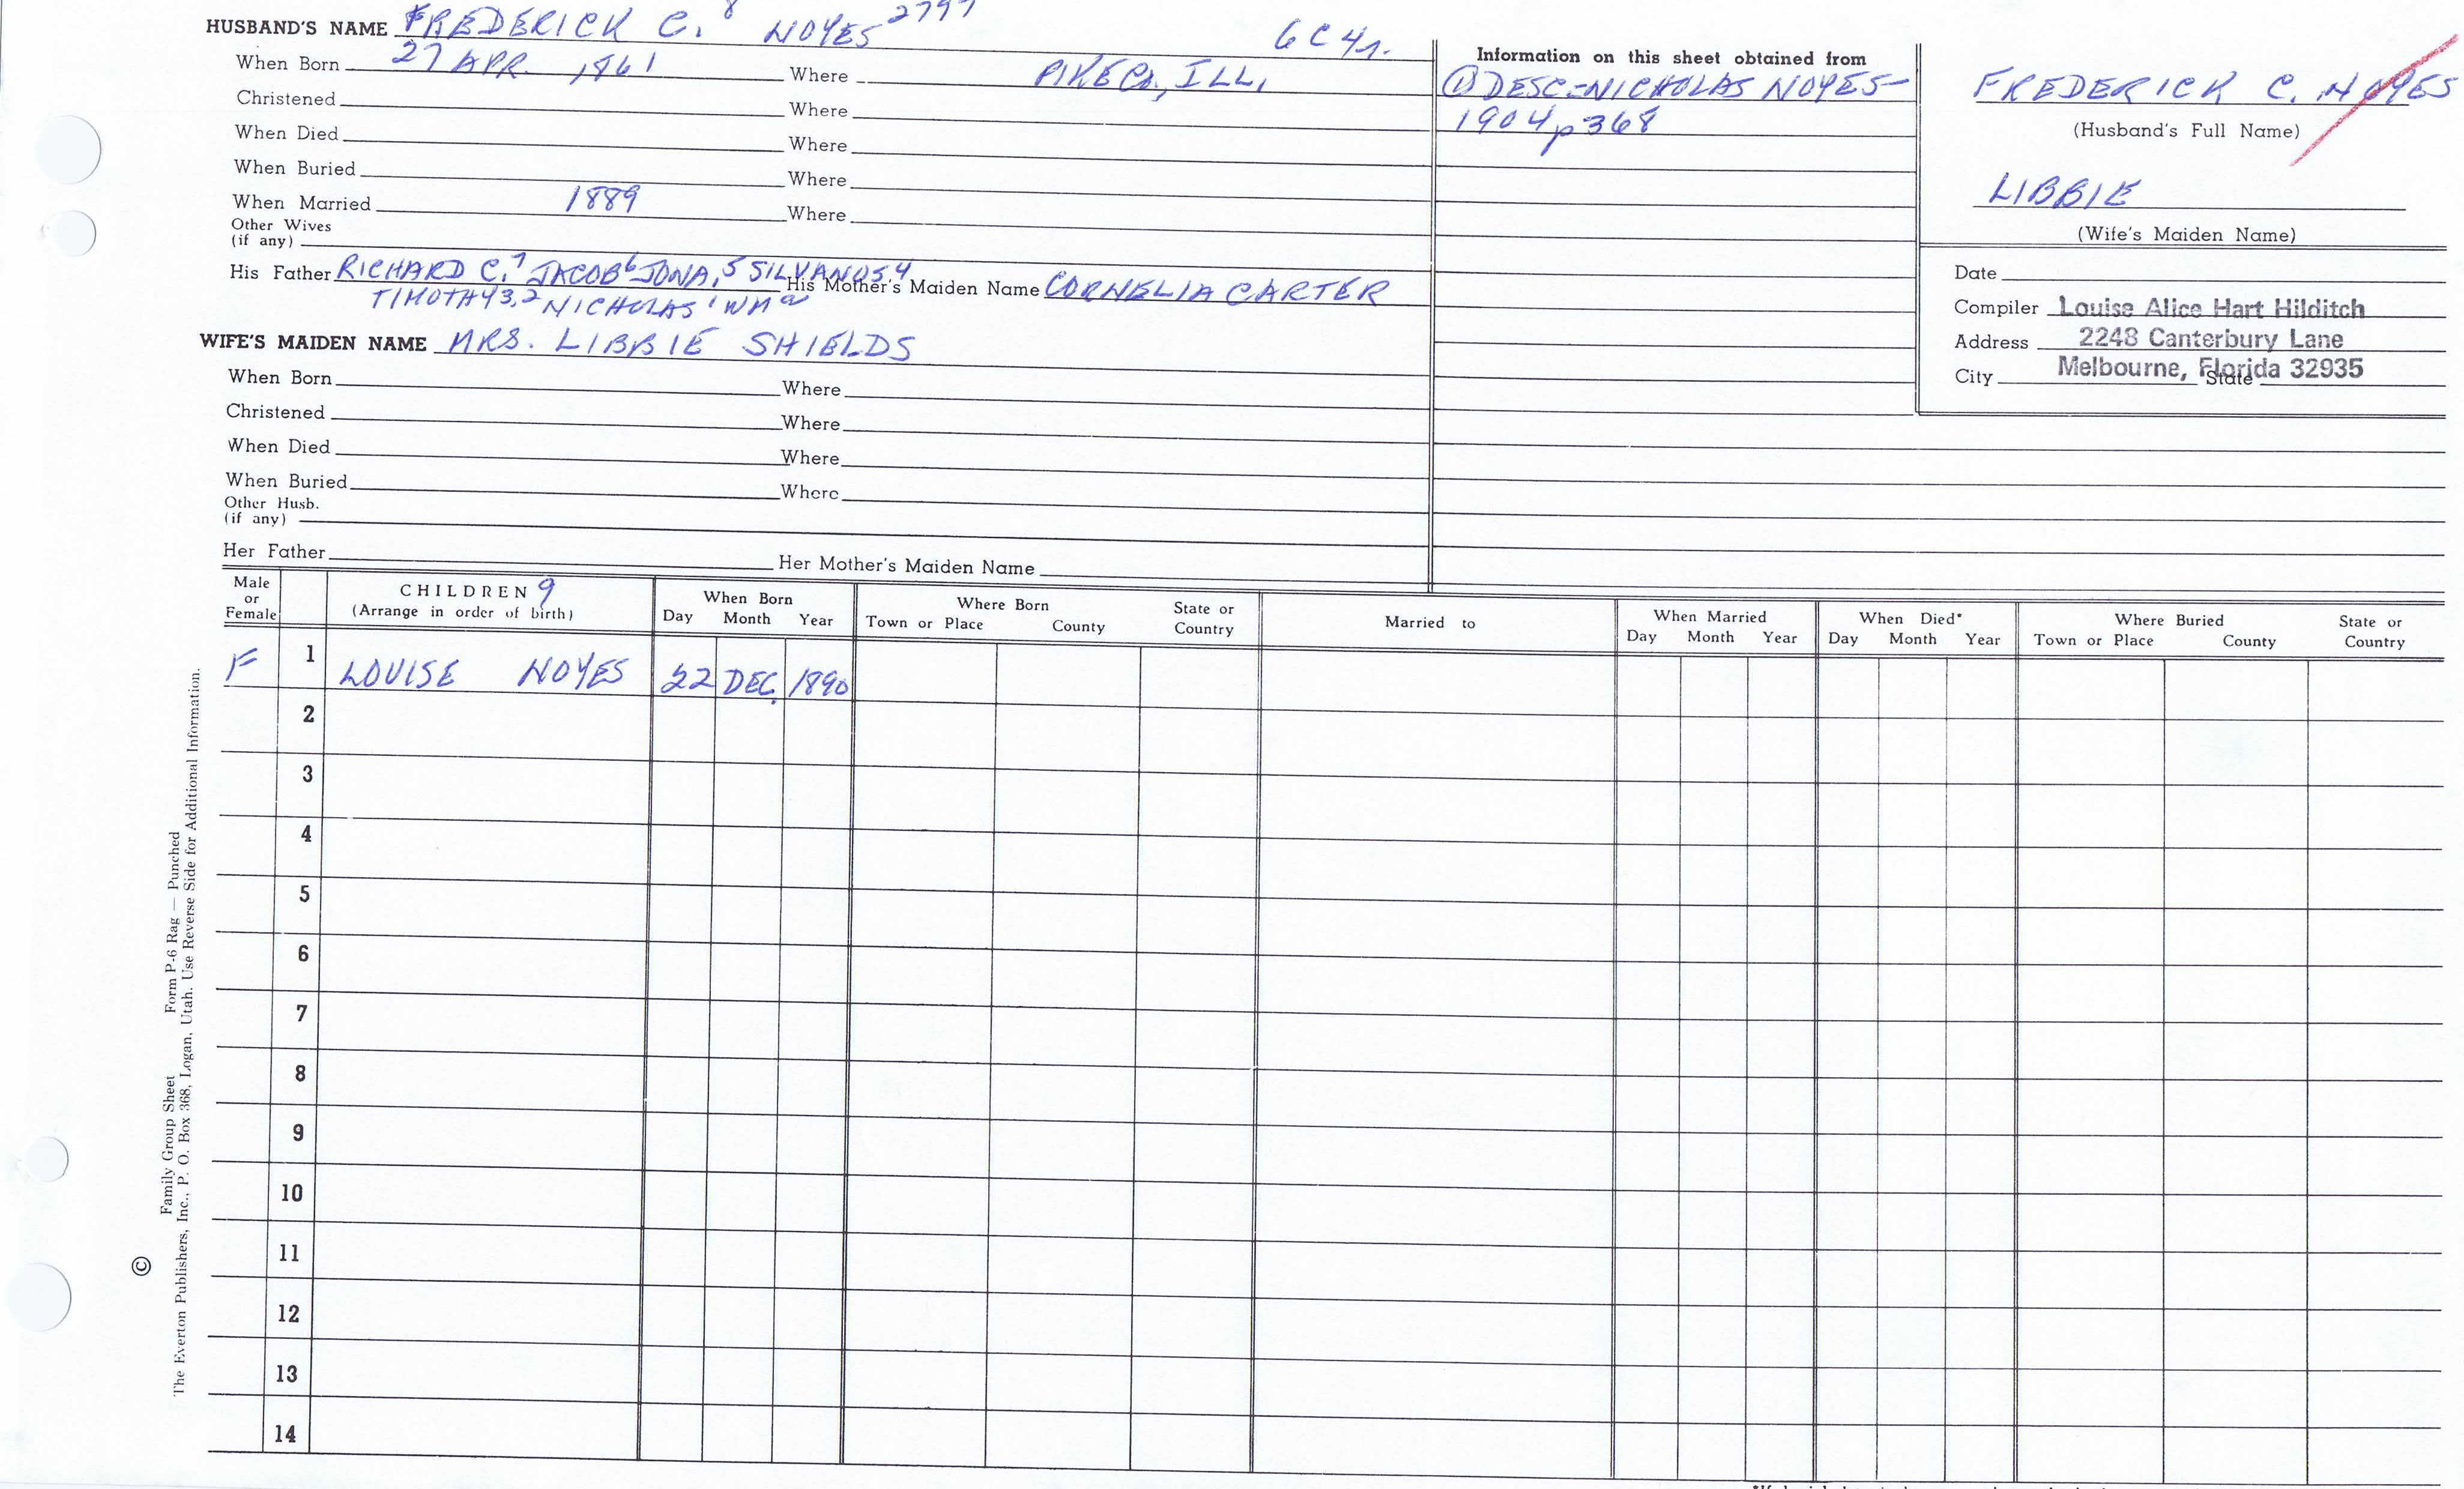 HUSBAND'S NAME FREDERICK C. 8 NOYES 2797 6C4r.
When Born 27 APR. 1861 Where PIKE Co., ILL.
Christened Where
When Died Where
When Buried Where
When Married 1889 Where
Other Wives
(if any)
His Father RICHARD C.7 JACOB6 JONA.5 SILVANUS4 His Mother's Maiden Name CORNELIA CARTER
TIMOTHY3,2 NICHOLAS1 WMa
WIFE'S MAIDEN NAME MRS. LIBBIE SHIELDS
When Born Where
Christened Where
When Died Where
When Buried Where
Other Husb.
(if any)
Her Father Her Mother's Maiden Name
Information on this sheet obtained from
① DESC=NICHOLAS NOYES-
1904 p368
FREDERICK C. NOYES
(Husband's Full Name)
LIBBIE
(Wife's Maiden Name)
Date
Compiler Louise Alice Hart Hilditch
Address 2248 Canterbury Lane
City Melbourne, Florida 32935 State
Male or Female CHILDREN 9 (Arrange in order of birth) When Born Day Month Year Where Born Town or Place County State or Country Married to When Married Day Month Year When Died* Day Month Year Where Buried Town or Place County State or Country
F 1 LOUISE NOYES 22 DEC. 1890
2
3
4
5
6
7
8
9
10
11
12
13
14
© Family Group Sheet Form P-6 Rag — Punched
The Everton Publishers, Inc., P. O. Box 368, Logan, Utah. Use Reverse Side for Additional Information.